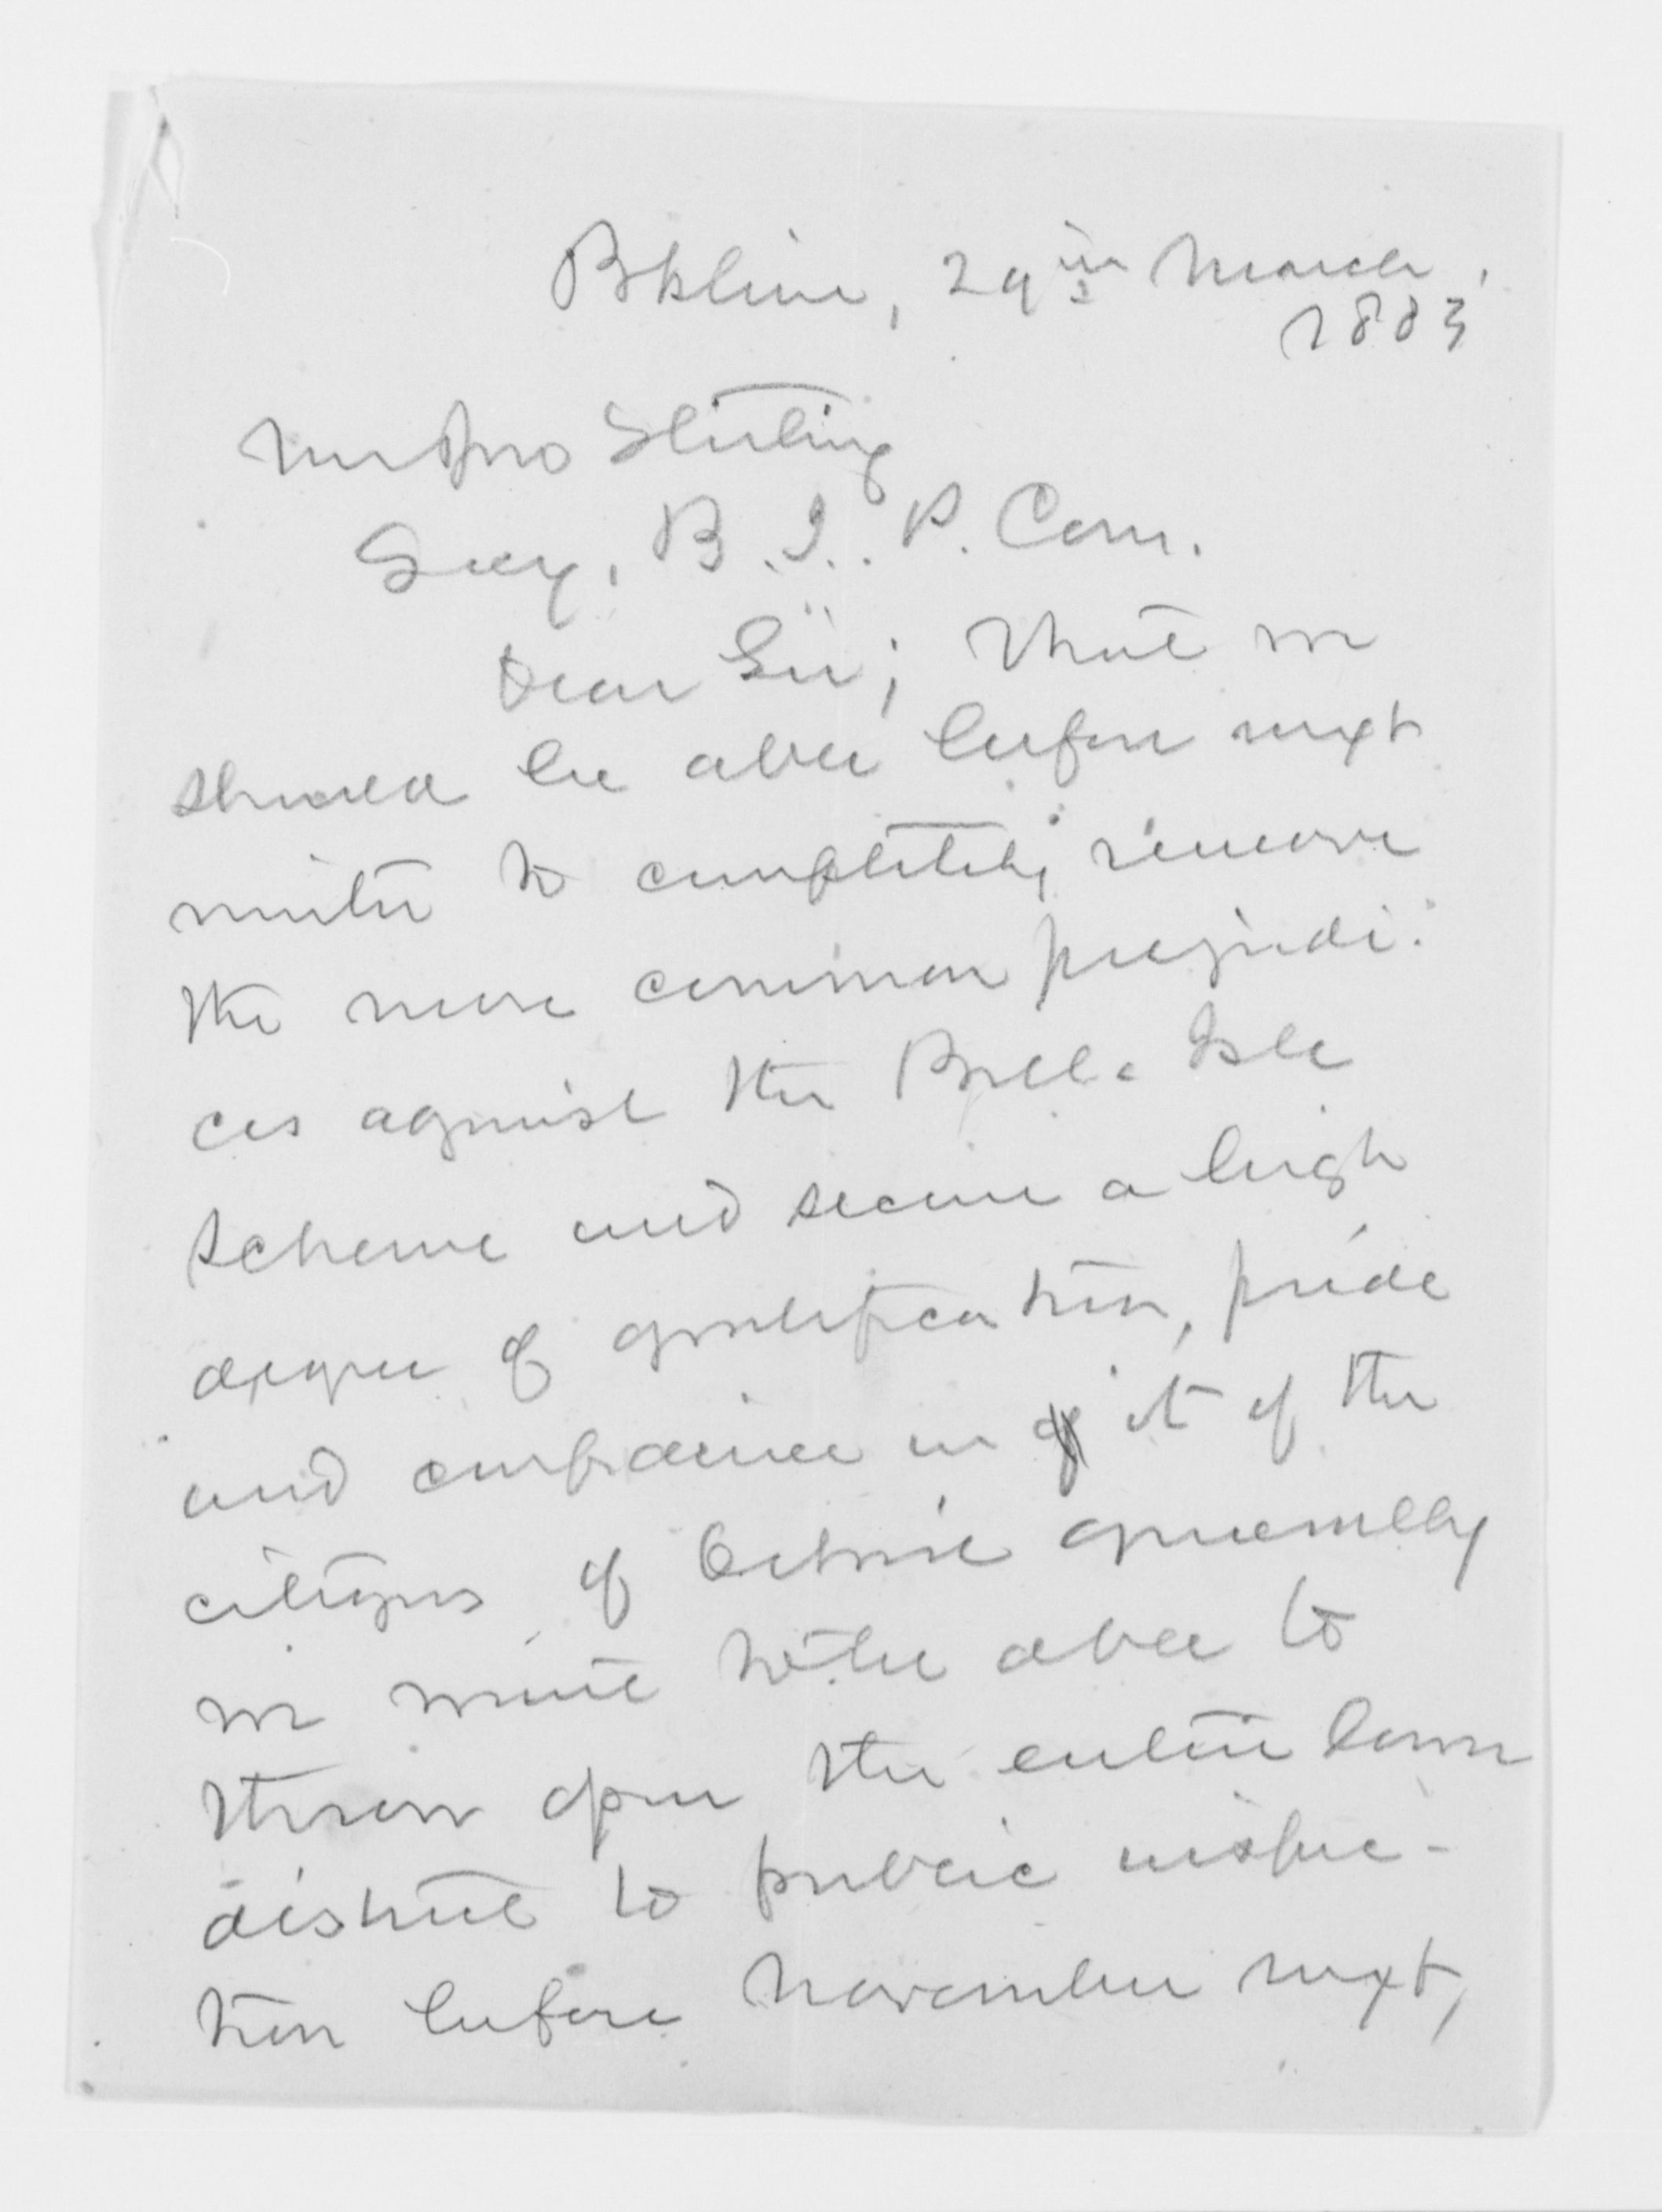 Bkline, 29th March,
1883
Mr Jno Stirling
Secy. B. I. P. Com.
Dear Sir; That we
should be able before next
winter to completely remove
the more common prejudi-
ces against the Belle Isle
scheme and secure a high
degree of gratification, pride
and confidence in of it of the
citizens of Detroit generally
we must to be able to
throw open the entire lawn
district to public inspec-
tion before November next,